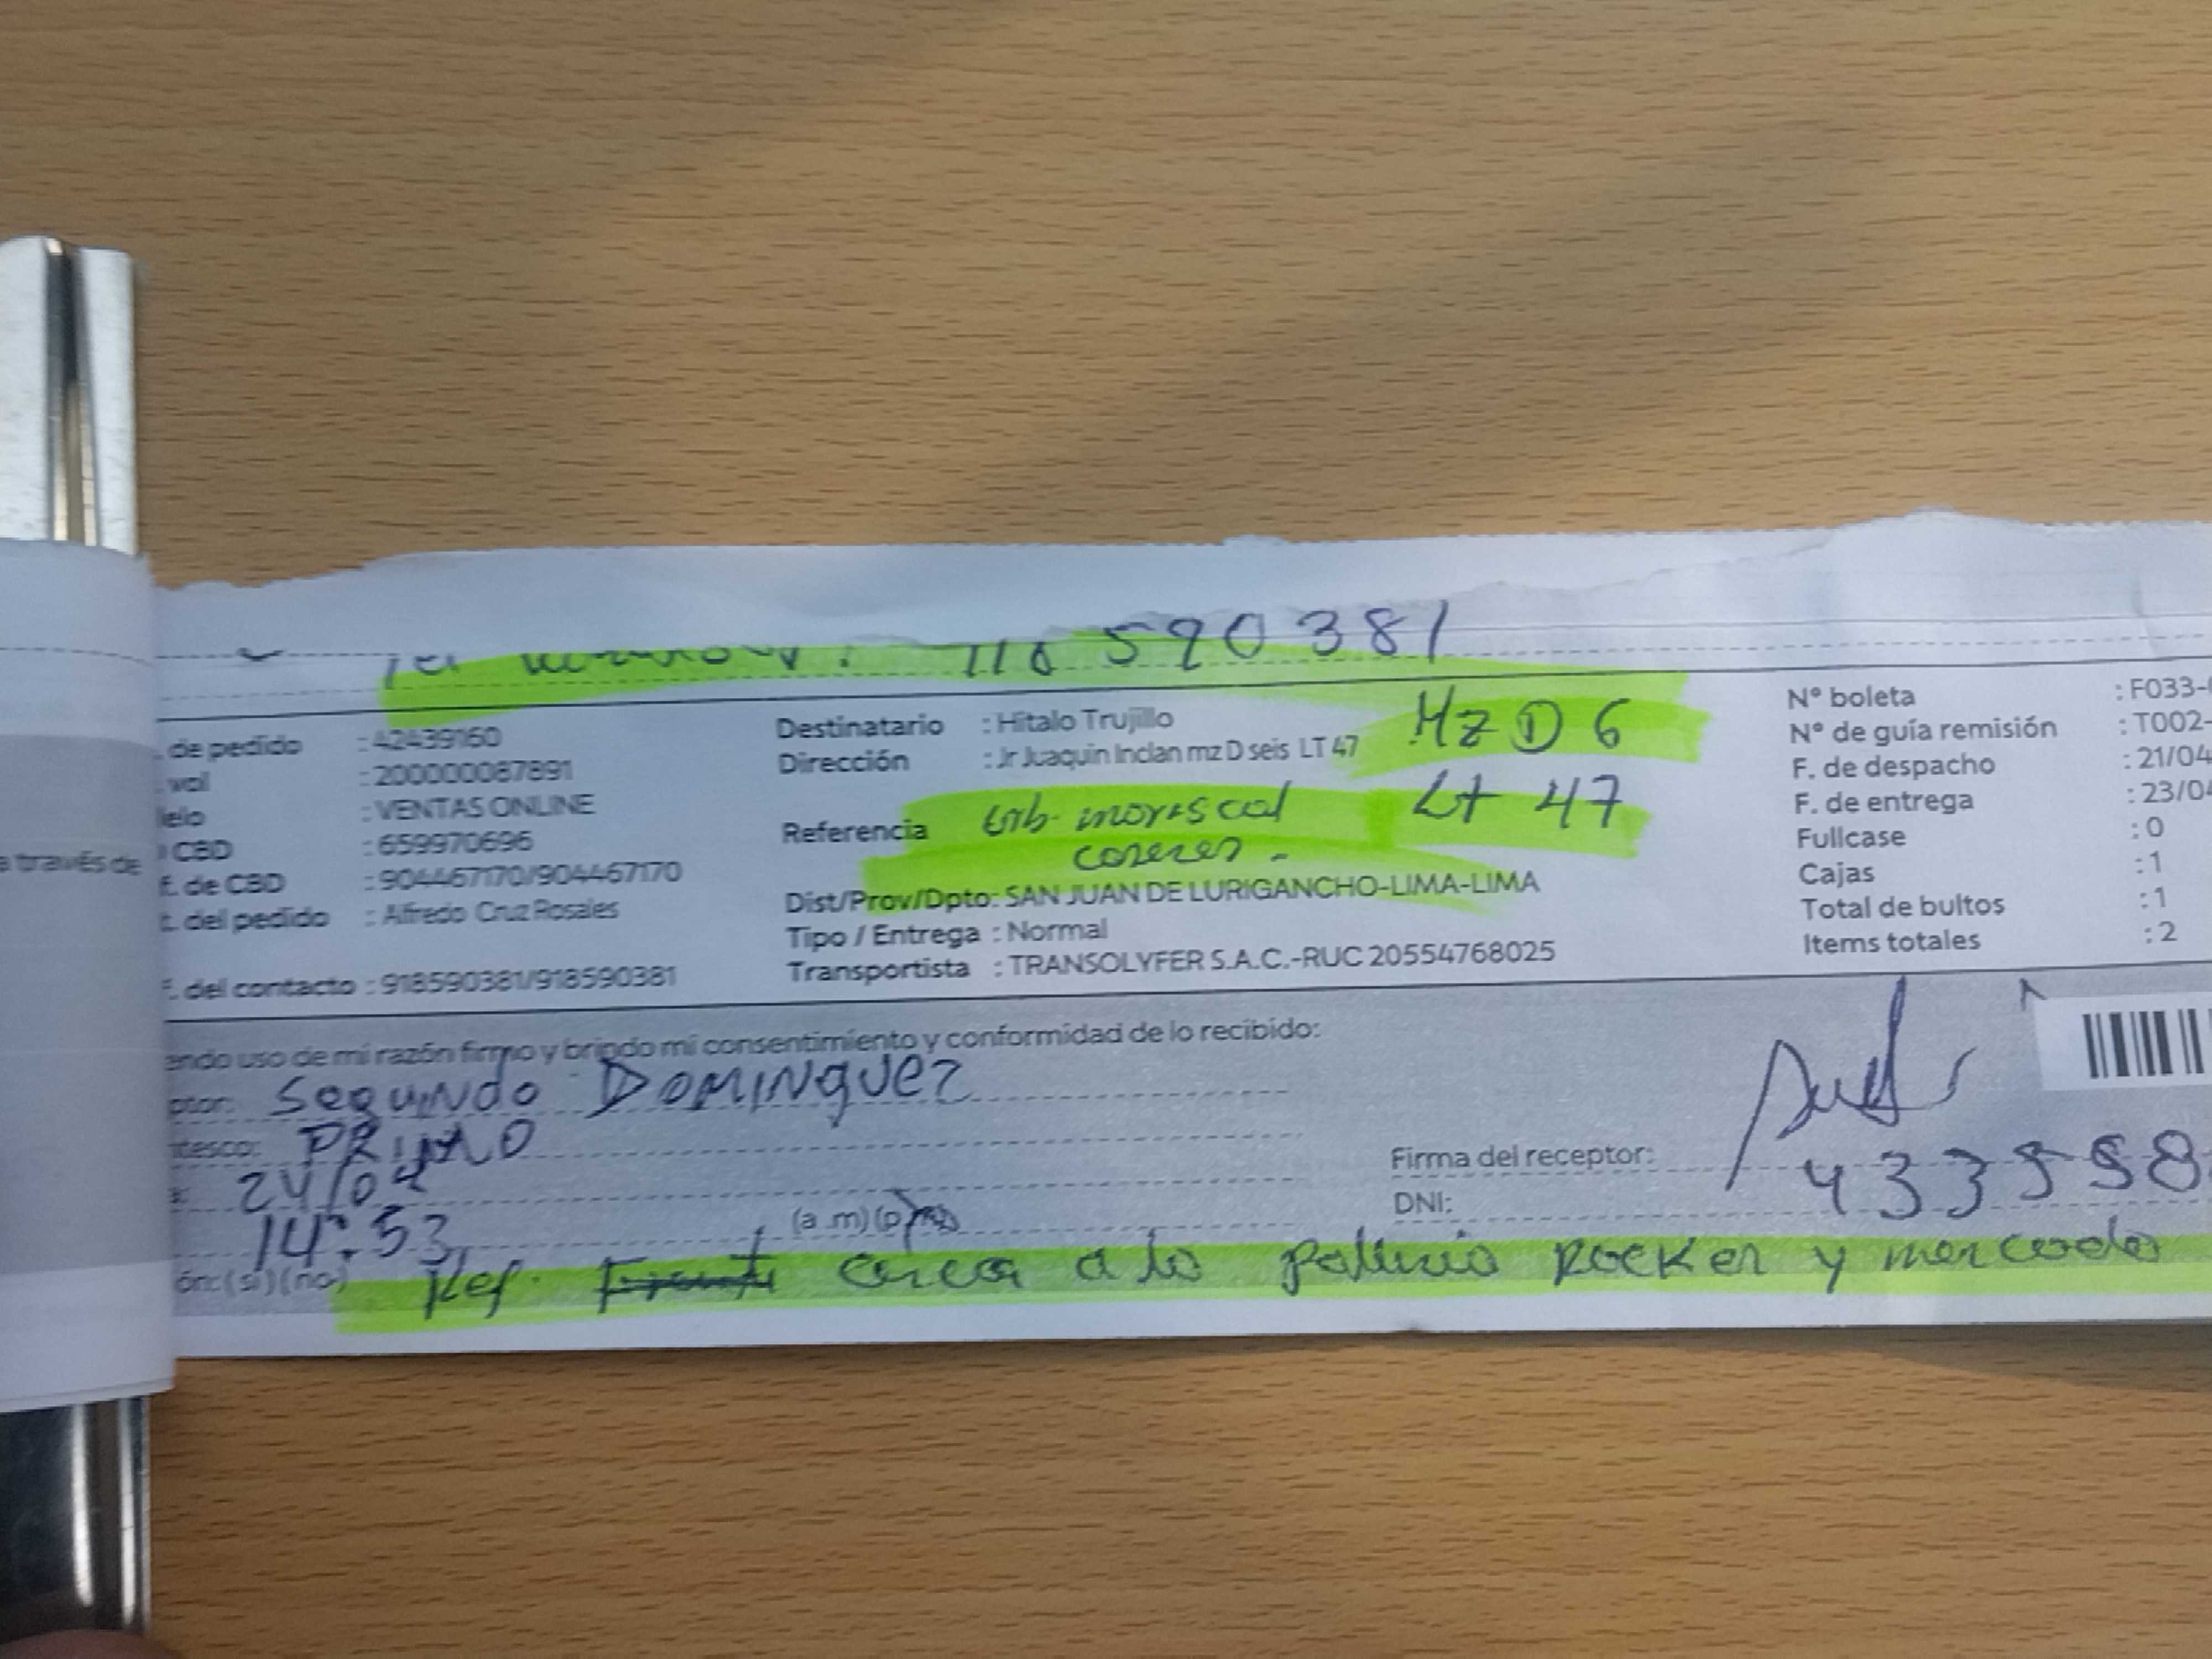 590381
de pedido : 42439160
val : 200000087891
elo : VENTAS ONLINE
CBD : 659970696
f. de CBD : 904467170/904467170
t. del pedido : Alfredo Cruz Rosales
f. del contacto : 918590381/918590381
a través de
Destinatario : Hitalo Trujillo
Dirección : Jr Juaquin Inclan mz D seis LT 47
Mz D 6
Lt 47
Referencia Urb. moriscal
caseres -
Dist/Prov/Dpto: SAN JUAN DE LURIGANCHO-LIMA-LIMA
Tipo / Entrega : Normal
Transportista : TRANSOLYFER S.A.C.-RUC 20554768025
Nº boleta : F033-
Nº de guía remisión : T002-
F. de despacho : 21/04
F. de entrega : 23/04
Fullcase : 0
Cajas : 1
Total de bultos : 1
Items totales : 2
endo uso de mi razón firmo y brindo mi consentimiento y conformidad de lo recibido:
ptor: Segundo Dominguez
ntesco: PRIMO
24/04
14:53 (a.m)(p
Firma del receptor:
DNI:
ón: (si) (no) Ref. cerca a la Rocker y mercado